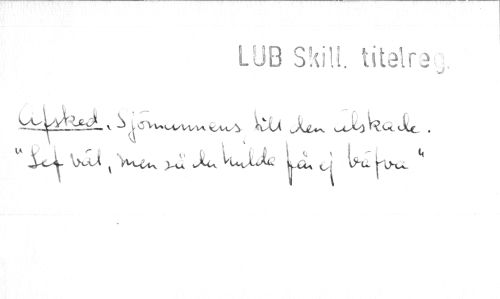 LUB Skill. titelreg.
Afsked, Sjömannens till den älskade.
"Lef väl, men så du hulda får ej bäfva"